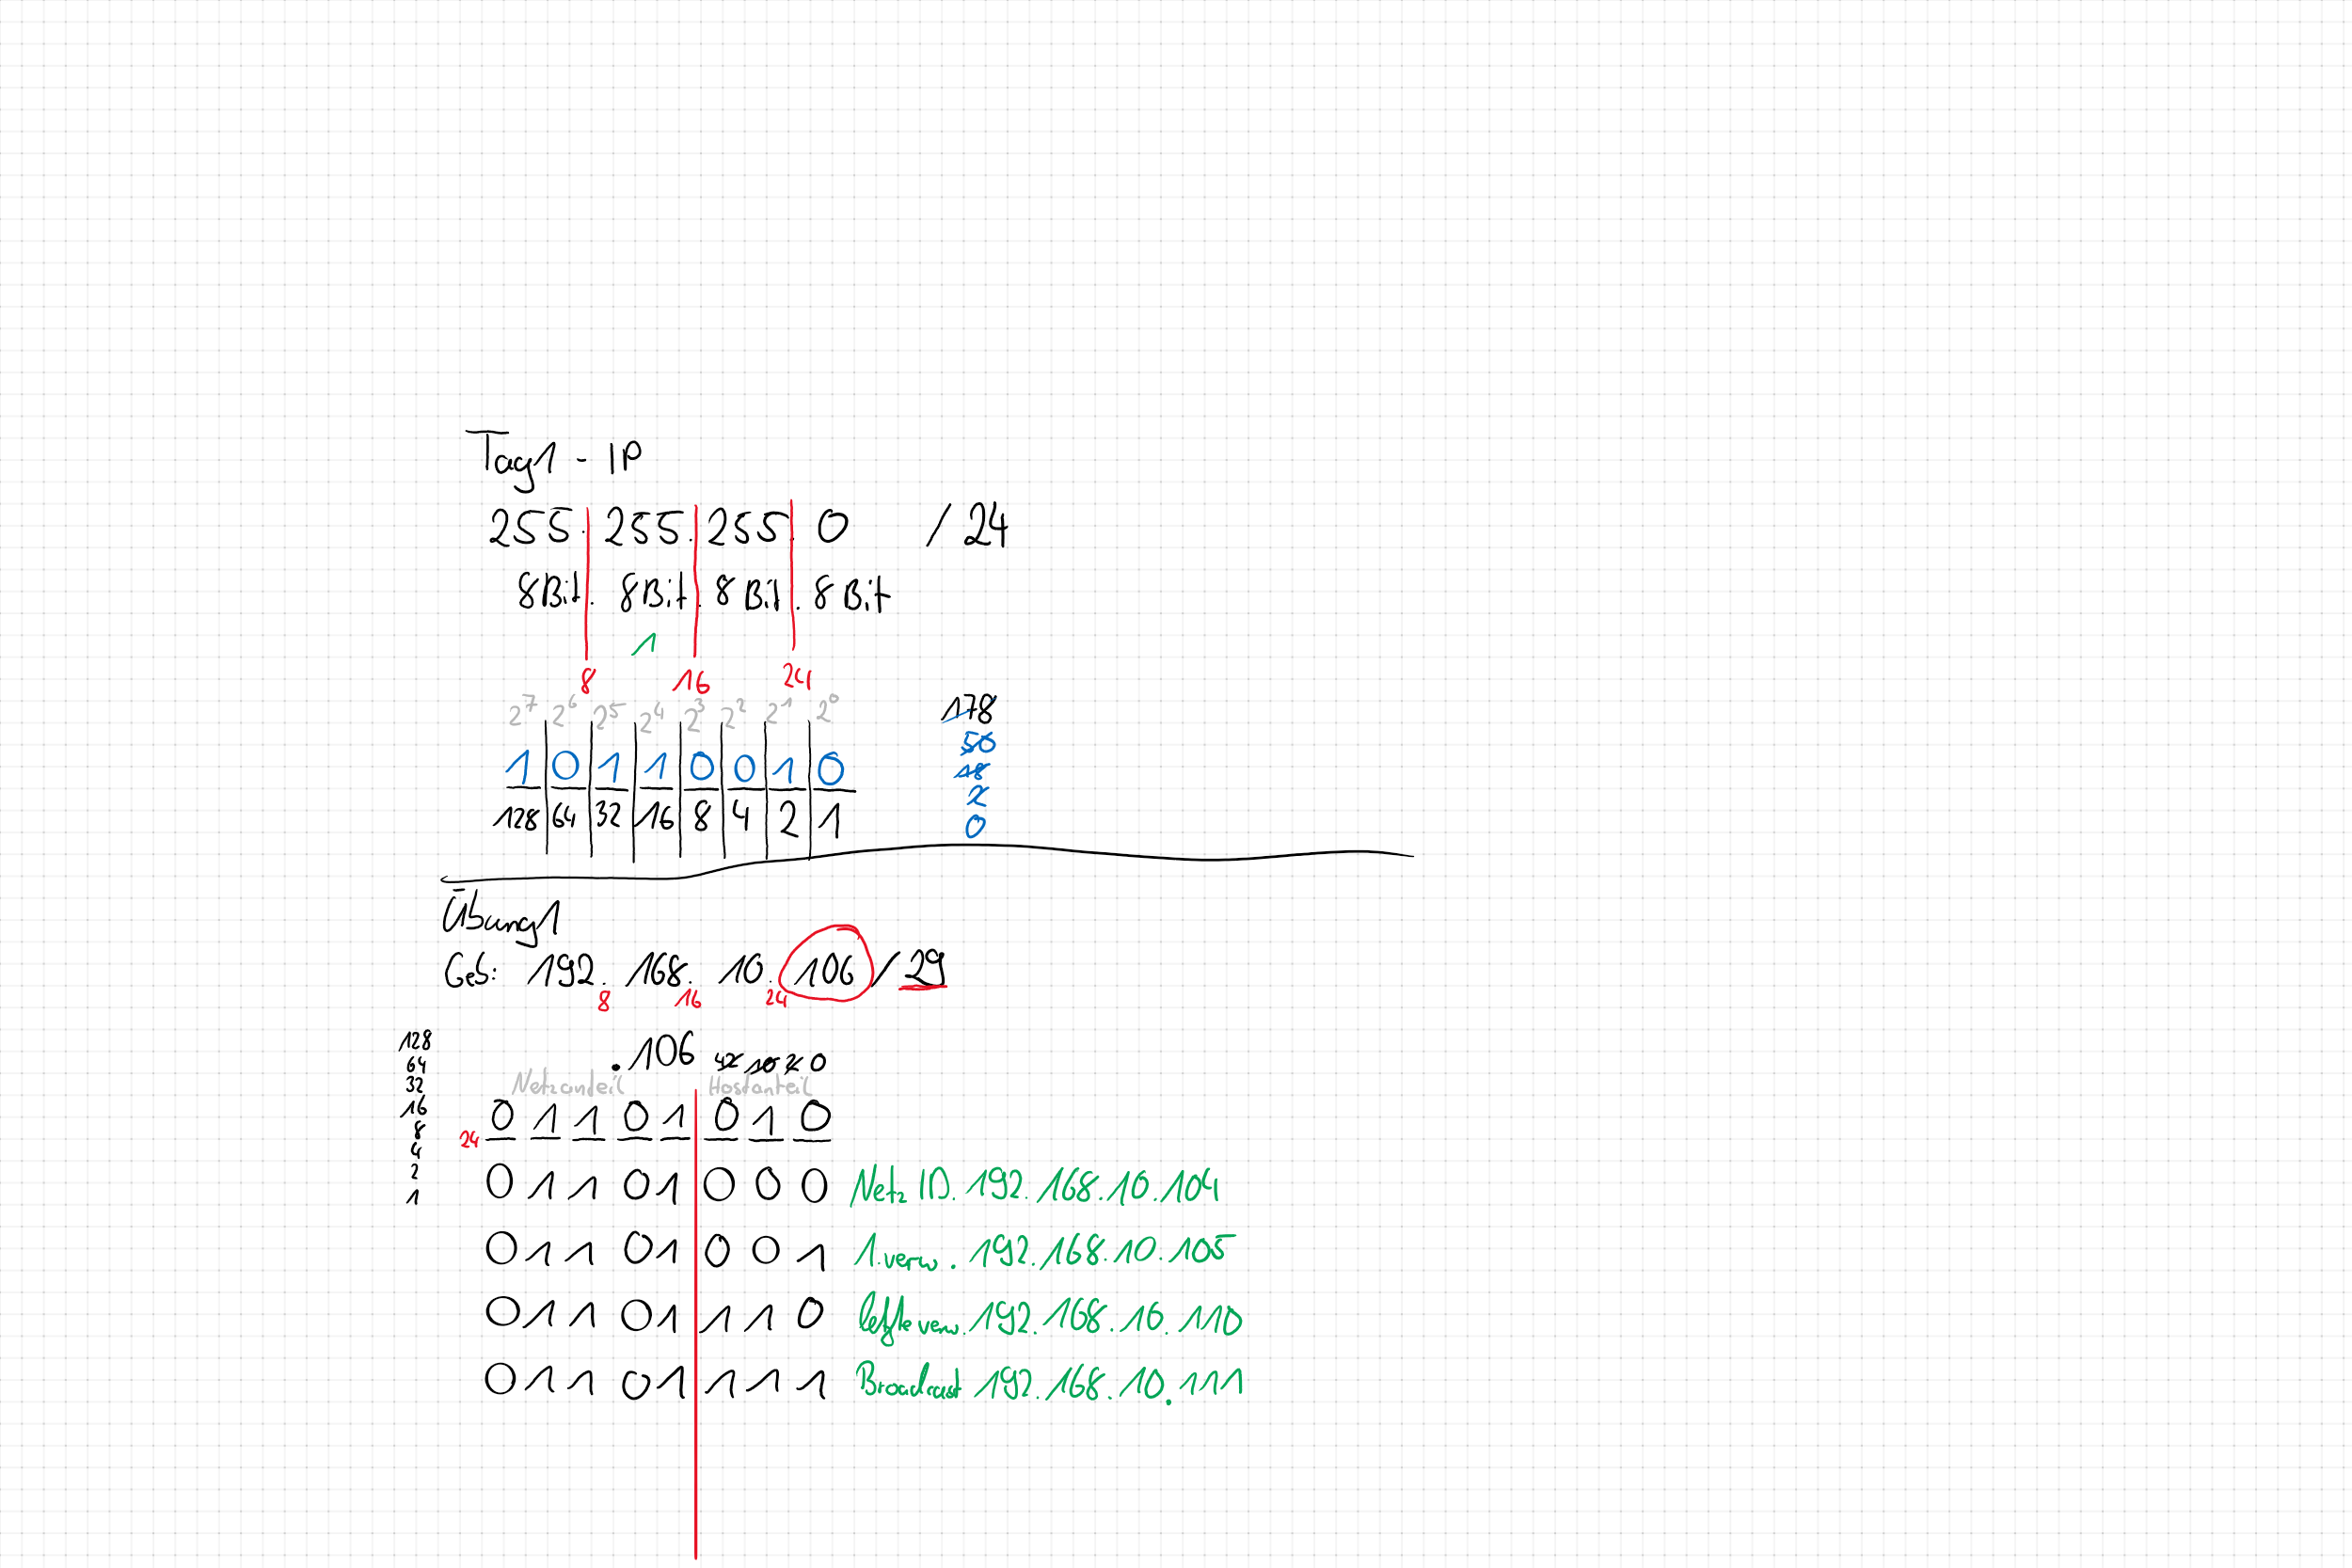 Tag1 - IP
255. 255. 255. 0 /24
8Bit. 8Bit. 8Bit. 8Bit
1
8 16 24
2^7 2^6 2^5 2^4 2^3 2^2 2^1 2^0 178
50
1 0 1 1 0 0 1 0 18
2
128 64 32 16 8 4 2 1 0
Übung1
Geb: 192. 168. 10. 106 / 29
8 16 24
128
64
32
16
8
4
2
1
.106 42 10 2 0
Netzanteil Hostanteil
24 0 1 1 0 1 0 1 0
0 1 1 0 1 0 0 0 Netz ID. 192.168.10.104
0 1 1 0 1 0 0 1 1.verw. 192.168.10.105
0 1 1 0 1 1 1 0 letzte verw. 192.168.10.110
0 1 1 0 1 1 1 1 Broadcast 192.168.10.111